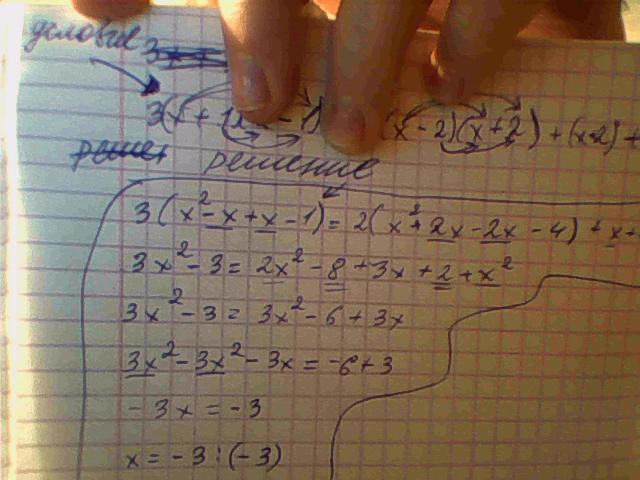 условие
3(x + 1 - 1) (x - 2)(x + 2) + (x+2) +
решение
3(x² - x + x - 1) = 2(x² + 2x - 2x - 4) + x +
3x² - 3 = 2x² - 8 + 3x + 2 + x²
3x² - 3 = 3x² - 6 + 3x
3x² - 3x² - 3x = -6 + 3
- 3x = -3
x = -3 : (-3)